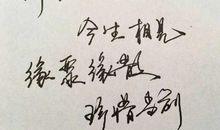 今生相见
缘聚缘散
珍惜当前